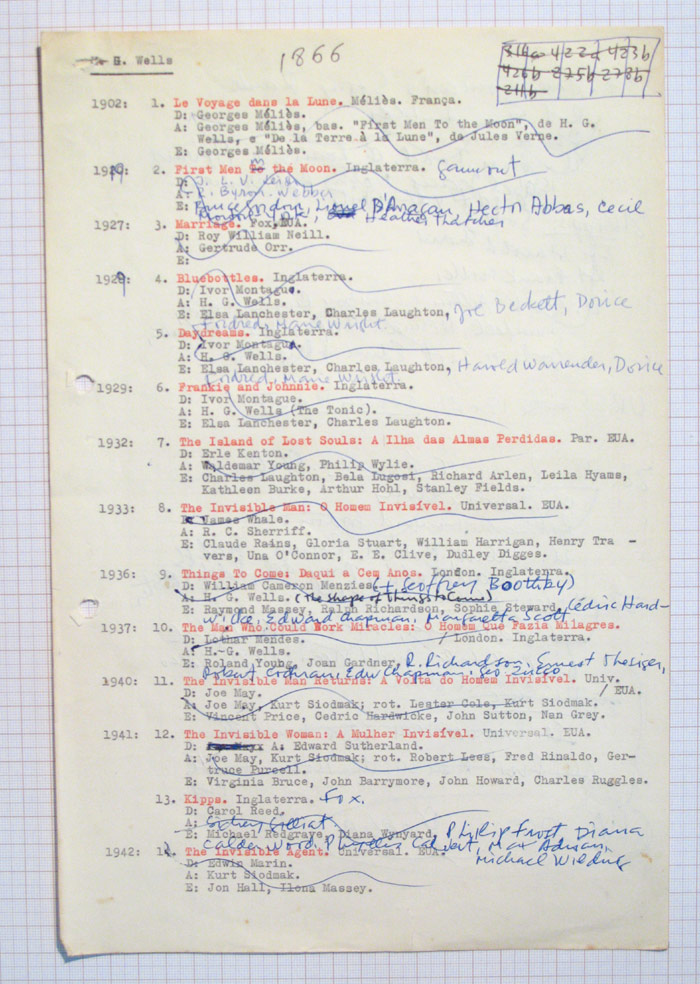 H. G. Wells
1866
422d 423b
426b 275b 273b
211b
1902: 1. Le Voyage dans la Lune. Méliès. França.
D: Georges Méliès.
A: Georges Méliès, bas. "First Men To the Moon", de H. G.
Wells, e "De la Terre à la Lune", de Jules Verne.
E: Georges Méliès.
1919: 2. First Men in the Moon. Inglaterra. Gaumont
D: J. L. V. Leigh
A: R. Byron-Webber
E: Bruce Gordon, Lionel D'Aragan, Hector Abbas, Cecil
Heather Thatcher
1927: 3. Marriage. Fox, EUA.
D: Roy William Neill.
A: Gertrude Orr.
E:
1929: 4. Bluebottles. Inglaterra.
D: Ivor Montague.
A: H. G. Wells.
E: Elsa Lanchester, Charles Laughton, Joe Beckett, Dorice
Fordred, Marie Wright
5. Daydreams. Inglaterra.
D: Ivor Montague.
A: H. G. Wells.
E: Elsa Lanchester, Charles Laughton, Harold Warrender, Dorice
Fordred, Marie Wright
1929: 6. Frankie and Johnnie. Inglaterra.
D: Ivor Montague.
A: H. G. Wells (The Tonic).
E: Elsa Lanchester, Charles Laughton.
1932: 7. The Island of Lost Souls: A Ilha das Almas Perdidas. Par. EUA.
D: Erle Kenton.
A: Waldemar Young, Philip Wylie.
E: Charles Laughton, Bela Lugosi, Richard Arlen, Leila Hyams,
Kathleen Burke, Arthur Hohl, Stanley Fields.
1933: 8. The Invisible Man: O Homem Invisível. Universal. EUA.
D: James Whale.
A: R. C. Sherriff.
E: Claude Rains, Gloria Stuart, William Harrigan, Henry Tra -
vers, Una O'Connor, E. E. Clive, Dudley Digges.
1936: 9. Things To Come: Daqui a Cem Anos. London. Inglaterra.
D: William Cameron Menzies (+ Geoffrey Boothby)
A: H. G. Wells. (The shape of things to come)
E: Raymond Massey, Ralph Richardson, Sophie Steward, Cedric Hard-
wicke, Edward Chapman, Margaretta Scott
1937: 10. The Man Who Could Work Miracles: O Homem Que Fazia Milagres.
D: Lothar Mendes. / London. Inglaterra.
A: H. G. Wells.
E: Roland Young, Joan Gardner, R. Richardson, Ernest Thesiger,
Robert Cochran, Edw Chapman, Geo Zucco
1940: 11. The Invisible Man Returns: A Volta do Homem Invisível. Univ.
D: Joe May. / EUA.
A: Joe May, Kurt Siodmak; rot. Lester Cole, Kurt Siodmak.
E: Vincent Price, Cedric Hardwicke, John Sutton, Nan Grey.
1941: 12. The Invisible Woman: A Mulher Invisível. Universal. EUA.
D: A. Edward Sutherland.
A: Joe May, Kurt Siodmak; rot. Robert Less, Fred Rinaldo, Ger-
truce Purcell.
E: Virginia Bruce, John Barrymore, John Howard, Charles Ruggles.
13. Kipps. Inglaterra. Fox.
D: Carol Reed.
A: Sidney Gilliat
E: Michael Redgrave, Diana Wynyard, Philip Frost, Diana
Calderwood, Phyllis Calvert, Max Adrian,
Michael Wilding
1942: 14. The Invisible Agent. Universal. EUA.
D: Edwin Marin.
A: Kurt Siodmak.
E: Jon Hall, Ilona Massey.